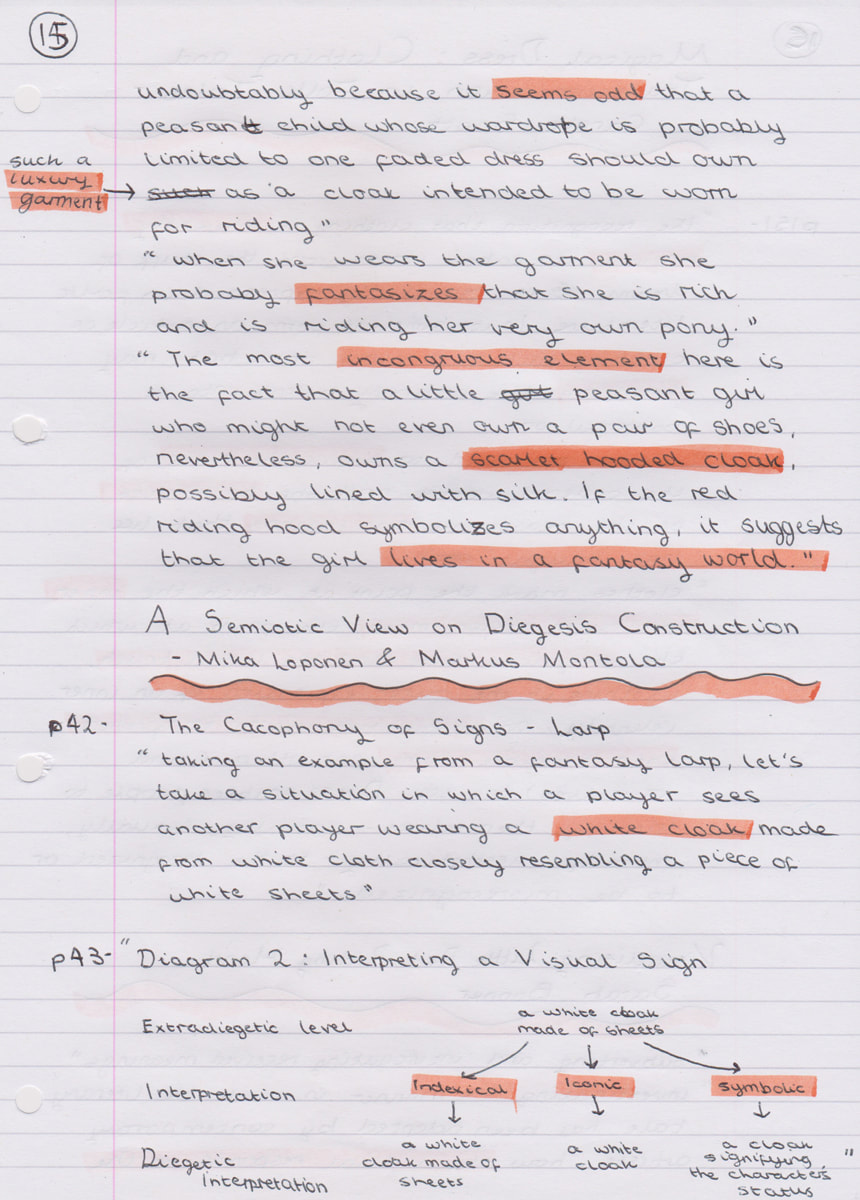 15
undoubtably because it seems odd that a
peasant child whose wardrope is probably
limited to one faded dress should own
such a
luxury
garment → such as a cloak intended to be worn
for riding"
" when she wears the garment she
probaby fantasizes that she is rich
and is riding her very own pony."
" The most incongruous element here is
the fact that a little gut peasant girl
who might not even own a pair of shoes,
nevertheless, owns a scarlet hooded cloak,
possibly lined with silk. If the red
riding hood symbolizes anything, it suggests
that the girl lives in a fantasy world."
A Semiotic View on Diegesis Construction
- Mika Loponen & Markus Montola
p42- The Cacophony of Signs - Larp
" taking an example from a fantasy larp, let's
take a situation in which a player sees
another player wearing a white cloak made
from white cloth closely resembling a piece of
white sheets"
p43- "Diagram 2 : Interpreting a Visual Sign
Extradiegetic level
a white cloak
made of sheets
Interpretation
Indexical Iconic Symbolic
Diegetic
Interpretation
a white
cloak made of
sheets
a white
cloak
a cloak
signifying
the characters
status "